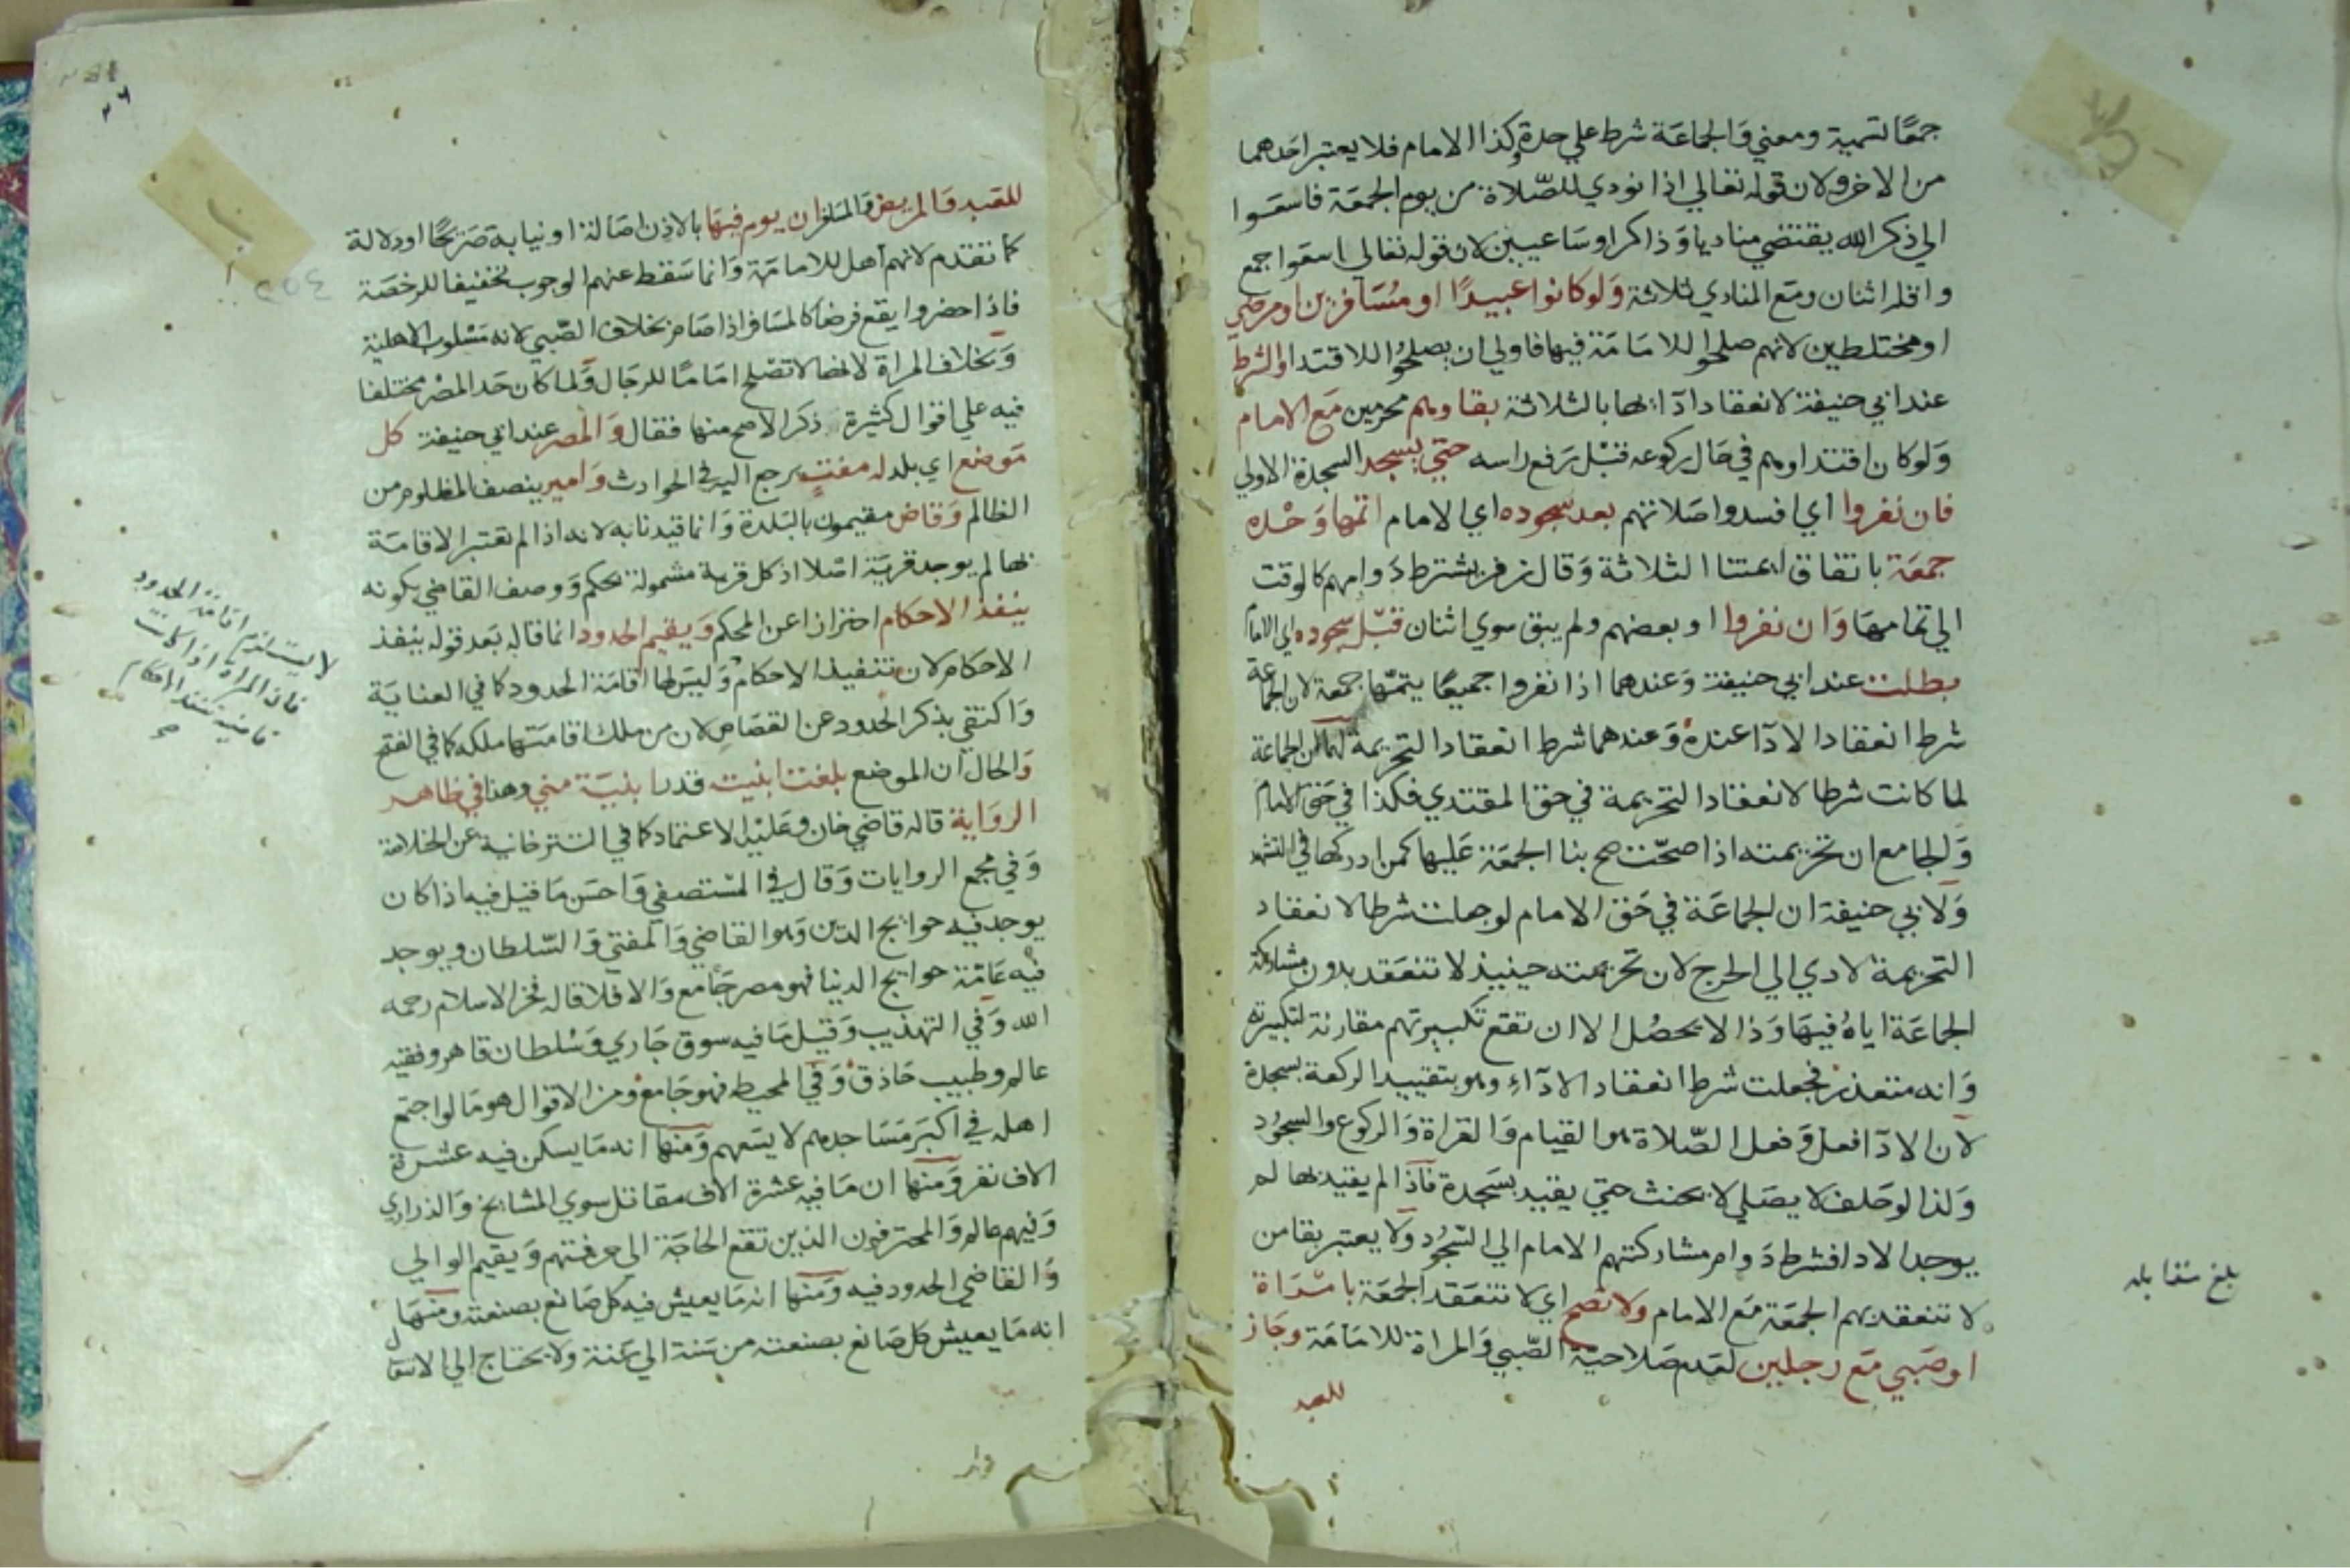 جمعًا تسمية ومعني وَالجماعَة شرط علي حدة وكذا الامام فلا يعتبر احَدهما
من الاخر ولان قوله تعالي اذا نودي للصّلاة من يوم الجمعَة فاسعَوا
الي ذكر الله يقتضي مناديا وَذاكرا وسَاعيين لان قوله تعالي اسعَوا جمع
واقله اثنان ومَع المنادي ثلاثة وَلو كانوا عبيدًا او مُسَافرين او مرضي
او مختلطين لانهم صلحوا للامَامَة فيها فاولي ان يصلحُوا للاقتدا والشرط
عند ابي حنيفة لانعقاد ادآئها بالثلاثة بقاوهم محرمين مَع الامام
وَلو كان اقتداوهم في حَال ركوعه قبْل رَفع راسه حتي يسجد السجدة الاولي
فان نفروا اي افسدوا صَلاتهم بعد سجوده اي الامام اتمها وَحْده
جمعَة باتفاق ايمتنا الثلاثة وَقال زفر يشترط دَوامهم كالوقت
الي تمامهَا وَان نفروا او بعضهم ولم يبق سوي اثنان قبْل سجوده اي الامام
بطلت عند ابي حنيفة وَعندهما اذا نفروا جميعًا يتمّها جمعة لان الجماعة
شرط انعقاد الادآ عندهُ وَعندهما شرط انعقاد التحريمة لهما ان الجماعة
لما كانت شرطا لانعقاد التحريمة في حق المقتدي فكذا في حَق الامام
وَالجامع ان تحريمته اذا صحّت صح بنا الجمعَة عَليها كمن ادركها في التشهد
وَلابي حنيفة ان الجماعَة في حَق الامام لو جعلت شرطا لانعقاد
التحريمة لادي الي الحرج لان تحريمته حينيذ لا تنعَقد بدون مشاركة
الجماعَة اياهُ فيهَا وَذا لا يحصُل الا ان تقع تكبيرتهم مقارنة لتكبيرته
وَانه متعذر فجعلت شرط انعقاد الادآء وهو بتقييد الركعة بسجدة
لان الادآ فعل وَفعل الصّلاة هو القيام وَالقراة وَالركوع والسجوُد
وَلذا لو حَلف لا يصَلي لا يحنث حتي يقيد بسَجدة فاذا لم يقيد بها لم
يوجد الادا فشرط دَوامر مشاركتهم الامام الي السّجُود وَلا يعتبر بقا من
لا تنعقد بهم الجمعَة مَع الامام ولا تصح اي لا تنعَقد الجمعَة بامْرَاة
او صَبي مَع رجلين لعَدم صَلاحية الصّبي وَالمراة للامَامَة وجَاز
للعبد
بلغ مقابله
للعَبد وَالمريض وَالمسَافر ان يوم فيهَا بالاذن اصَالة او نيابة صَريحًا او دلالة
كما تقدم لانهم اهل للامامَة وَانما سَقط عنهم الوجوب تخفيفا للرخصَة
فاذا حضروا يقع فرضا كالمسَافر اذا صَام بخلاف الصّبي لانه مَسْلوب الاهلية
وَبخلاف المراة لانها لا تصْلح امَامًا للرجَال وَلما كان حَد المصْر مختلفا
فيه علي اقوال كثيرة ذكر الاصح منها فقال وَالمصر عند ابي حنيفة كل
مَوضع اي بلد له مفتٍ يرجع اليه في الحوادث وَامير ينصف المظلوم من
الظالم وَقاض مقيمون بالبَلدة وَانما قيدنا به لانه اذا لم تعتبر الاقامَة
بها لم يوجد قريَة اصْلا اذ كل قرية مشمولة بحكم وَوصف القاضي بكونه
ينفذ الاحكام احترازا عن المحكم وَيقيم الحدود انما قاله بَعد قوله ينفذ
الاحكام لان تنفيذ الاحكام وَليسَ لها اقامَة الحدود كما في العنايَة
وَاكتفي بذكر الحُدود عن القصَاص لان من ملك اقامَتها ملكه كما في الفتح
وَالحال ان الموضع بلغت ابنيته قدر ابنيَة مني وهذا في ظاهر
الروَاية قاله قاضي خان وعَليْه الاعتماد كما في التترخانية عن الخلاصة
وَفي مجمع الروايات وَقال في المسْتصفي وَاحسَن مَا قيل فيه اذا كان
يوجد فيه حوايج الدّين وَهو القاضي وَالمفتي وَالسّلطان ويوجد
فيْه عَامّة حوايج الدنيا فهو مصر جَامع وَالا فلا قاله فخر الاسلام رحمه
الله وَفي التهذيب وَقيْل مَا فيه سوق جَاري وَسُلطان قاهر وفقيه
عالم وطبيب حَاذق وَفي المحيط فهو جَامع ومن الاقوال هو مَا لو اجتمع
اهله في اكبَر مَسَاجدهم لا يسَعهم وَمنها انه مَا يسكن فيه عشرة
الاف نفر وَمنها ان مَا فيه عشرة الاف مقاتل سوي المشايخ وَالذراري
وَفيهم عالم وَالمحترفون الذين تقع الحاجَة الي حرفتهم وَيقيم الوالي
وَالقاضي الحدود فيه وَمنها انه مَا يعيش فيه كل صَانع بصنعته ومنهَا
انه مَا يعيش كل صَانع بصنعته من سَنة الي سَنة ولا يحتاج الي الانتقال
لا يستلزم اقامة الحدود
فان المراة اذا كانت
قاضية تنفذ الاحكام
صح